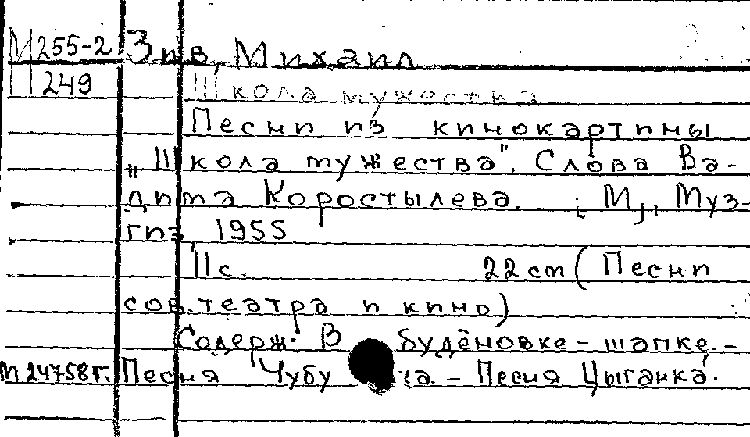 М255-2 Зив, Михаил
П249 Школа мужества
Песни из кинокартины
„Школа мужества". Слова Ва-
дима Коростылева. М., Муз-
гиз, 1955
11с. 22 cm (Песни
сов. театра и кино)
Содерж: В будёновке-шапке.-
М 24758г. Песня Чубу ка.- Песня Цыганка.